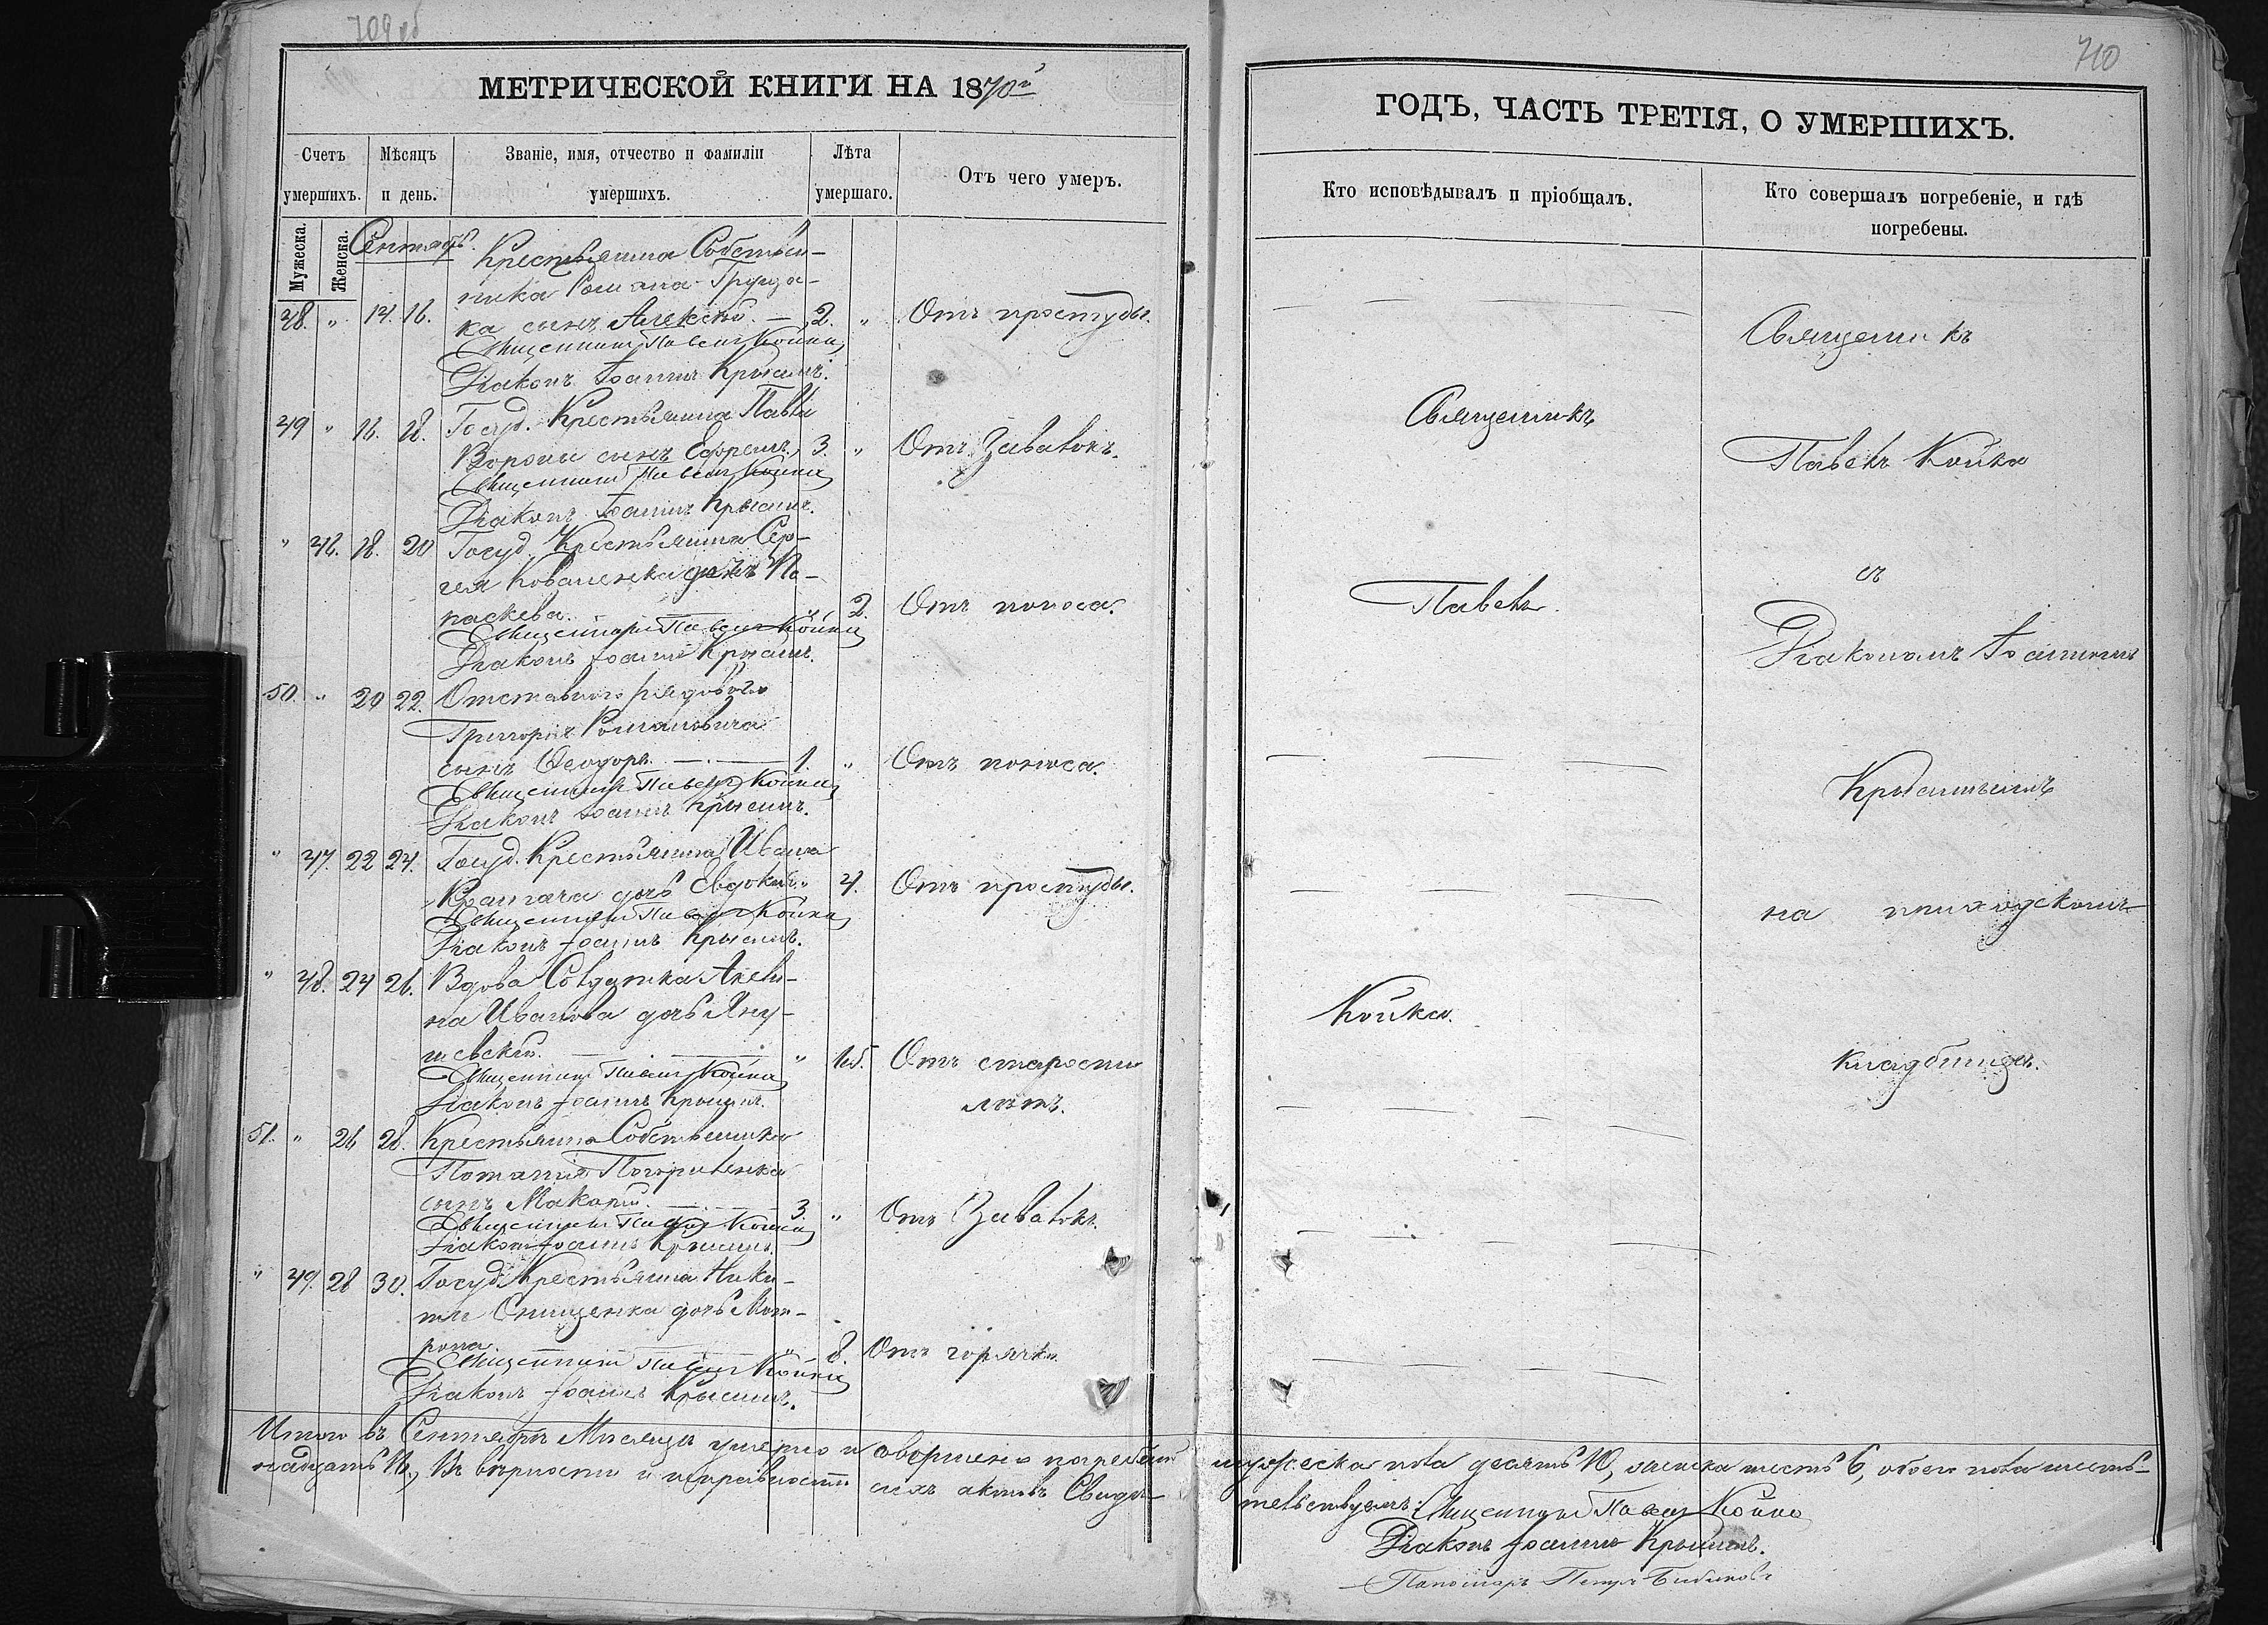 709 об
МЕТРИЧЕСКОЙ КНИГИ НА 1870й
Счетъ умершихъ.
Мѣсяцъ и день.
Званіе, имя, отчество и фамиліи умершихъ.
Лѣта умершаго.
Отъ чего умеръ.
Мужеска.
Женска.
Сентябр.
Крестьянина Собствен-
ника Романа
48. " 14. 16. ка сынъ Алексѣй. — 2. " Отъ простуды.
Священникъ Павелъ Койка
Діаконъ Іоаннъ Крысинъ.
49 " 16. 18. Госуд. Крестьянина Павла
Вороны сынъ Ефремъ. 3. " Отъ Зивалокъ.
Священникъ Павелъ Койка
Діаконъ Іоаннъ Крысинъ.
" 46. 18. 20 Госуд. Крестьянина Сер-
гея Коваленка дочь Па-
раскева. " 2. Отъ поноса.
Священникъ Павелъ Койка
Діаконъ Іоаннъ Крысинъ.
50. " 20 22. Отставного рядового
Григорія Романовича
сынъ Ѳеодоръ. — 1. " Отъ поноса.
Священникъ Павелъ Койка
Діаконъ Іоаннъ Крысинъ.
" 47. 22 24. Госуд. Крестьянина Ивана
дочь Евдокія " 4. Отъ простуды.
Священникъ Павелъ Койка
Діаконъ Іоаннъ Крысинъ.
" 48. 24 26. Вдова Солдатка Акели-
на Иванова дочь Яну-
шевскій. — " Отъ старости
Священникъ Павелъ Койка
Діаконъ Іоаннъ Крысинъ. лѣтъ.
51. " 26 28. Крестьянина Собственника
Потапія
сынъ Макарій. — 3. " Отъ Зивалокъ.
Священникъ Павелъ Койка
Діаконъ Іоаннъ Крысинъ.
" 49. 28 30. Госуд. Крестьянина Ники-
ты Онищенка дочь Мот-
рона. " 8. Отъ горячки.
Священникъ Павелъ Койка
Діаконъ Іоаннъ Крысинъ.
Итого въ Сентябрѣ Мѣсяцѣ умерло и совершено погребеній
надцать 16, Въ вѣрности и исправности сихъ актовъ Свидѣ-
710
ГОДЪ, ЧАСТЬ ТРЕТІЯ, О УМЕРШИХЪ.
Кто исповѣдывалъ и пріобщалъ.
Кто совершалъ погребеніе, и гдѣ
погребены.
Священникъ
Священникъ
Павелъ Койка
съ
Павелъ.
Діакономъ Іоанномъ
Крысинымъ
на приходскомъ
Койка.
кладбищѣ.
мужеска пола десять 10, женска шесть 6, обоего пола шест-
тельствуемъ: Священникъ Павелъ Койка
Діаконъ Іоаннъ Крысинъ.
Пономарь Петръ Бибиковъ